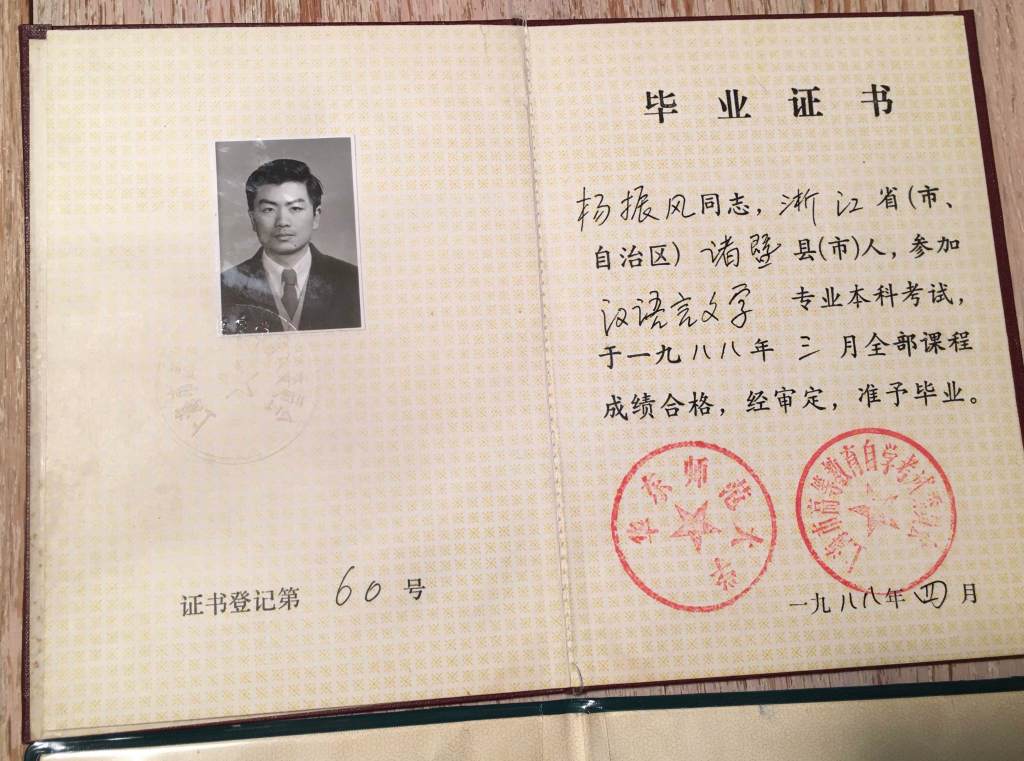 证书登记第 60 号
毕业证书
杨振风同志，淅江省(市、
自治区) 诸暨 县(市)人，参加
汉语言文学 专业本科考试，
于一九八八年 三 月全部课程
成绩合格，经审定，准予毕业。
华东师范大学
上海市高等教育自学考试委员会
一九八八年 四 月